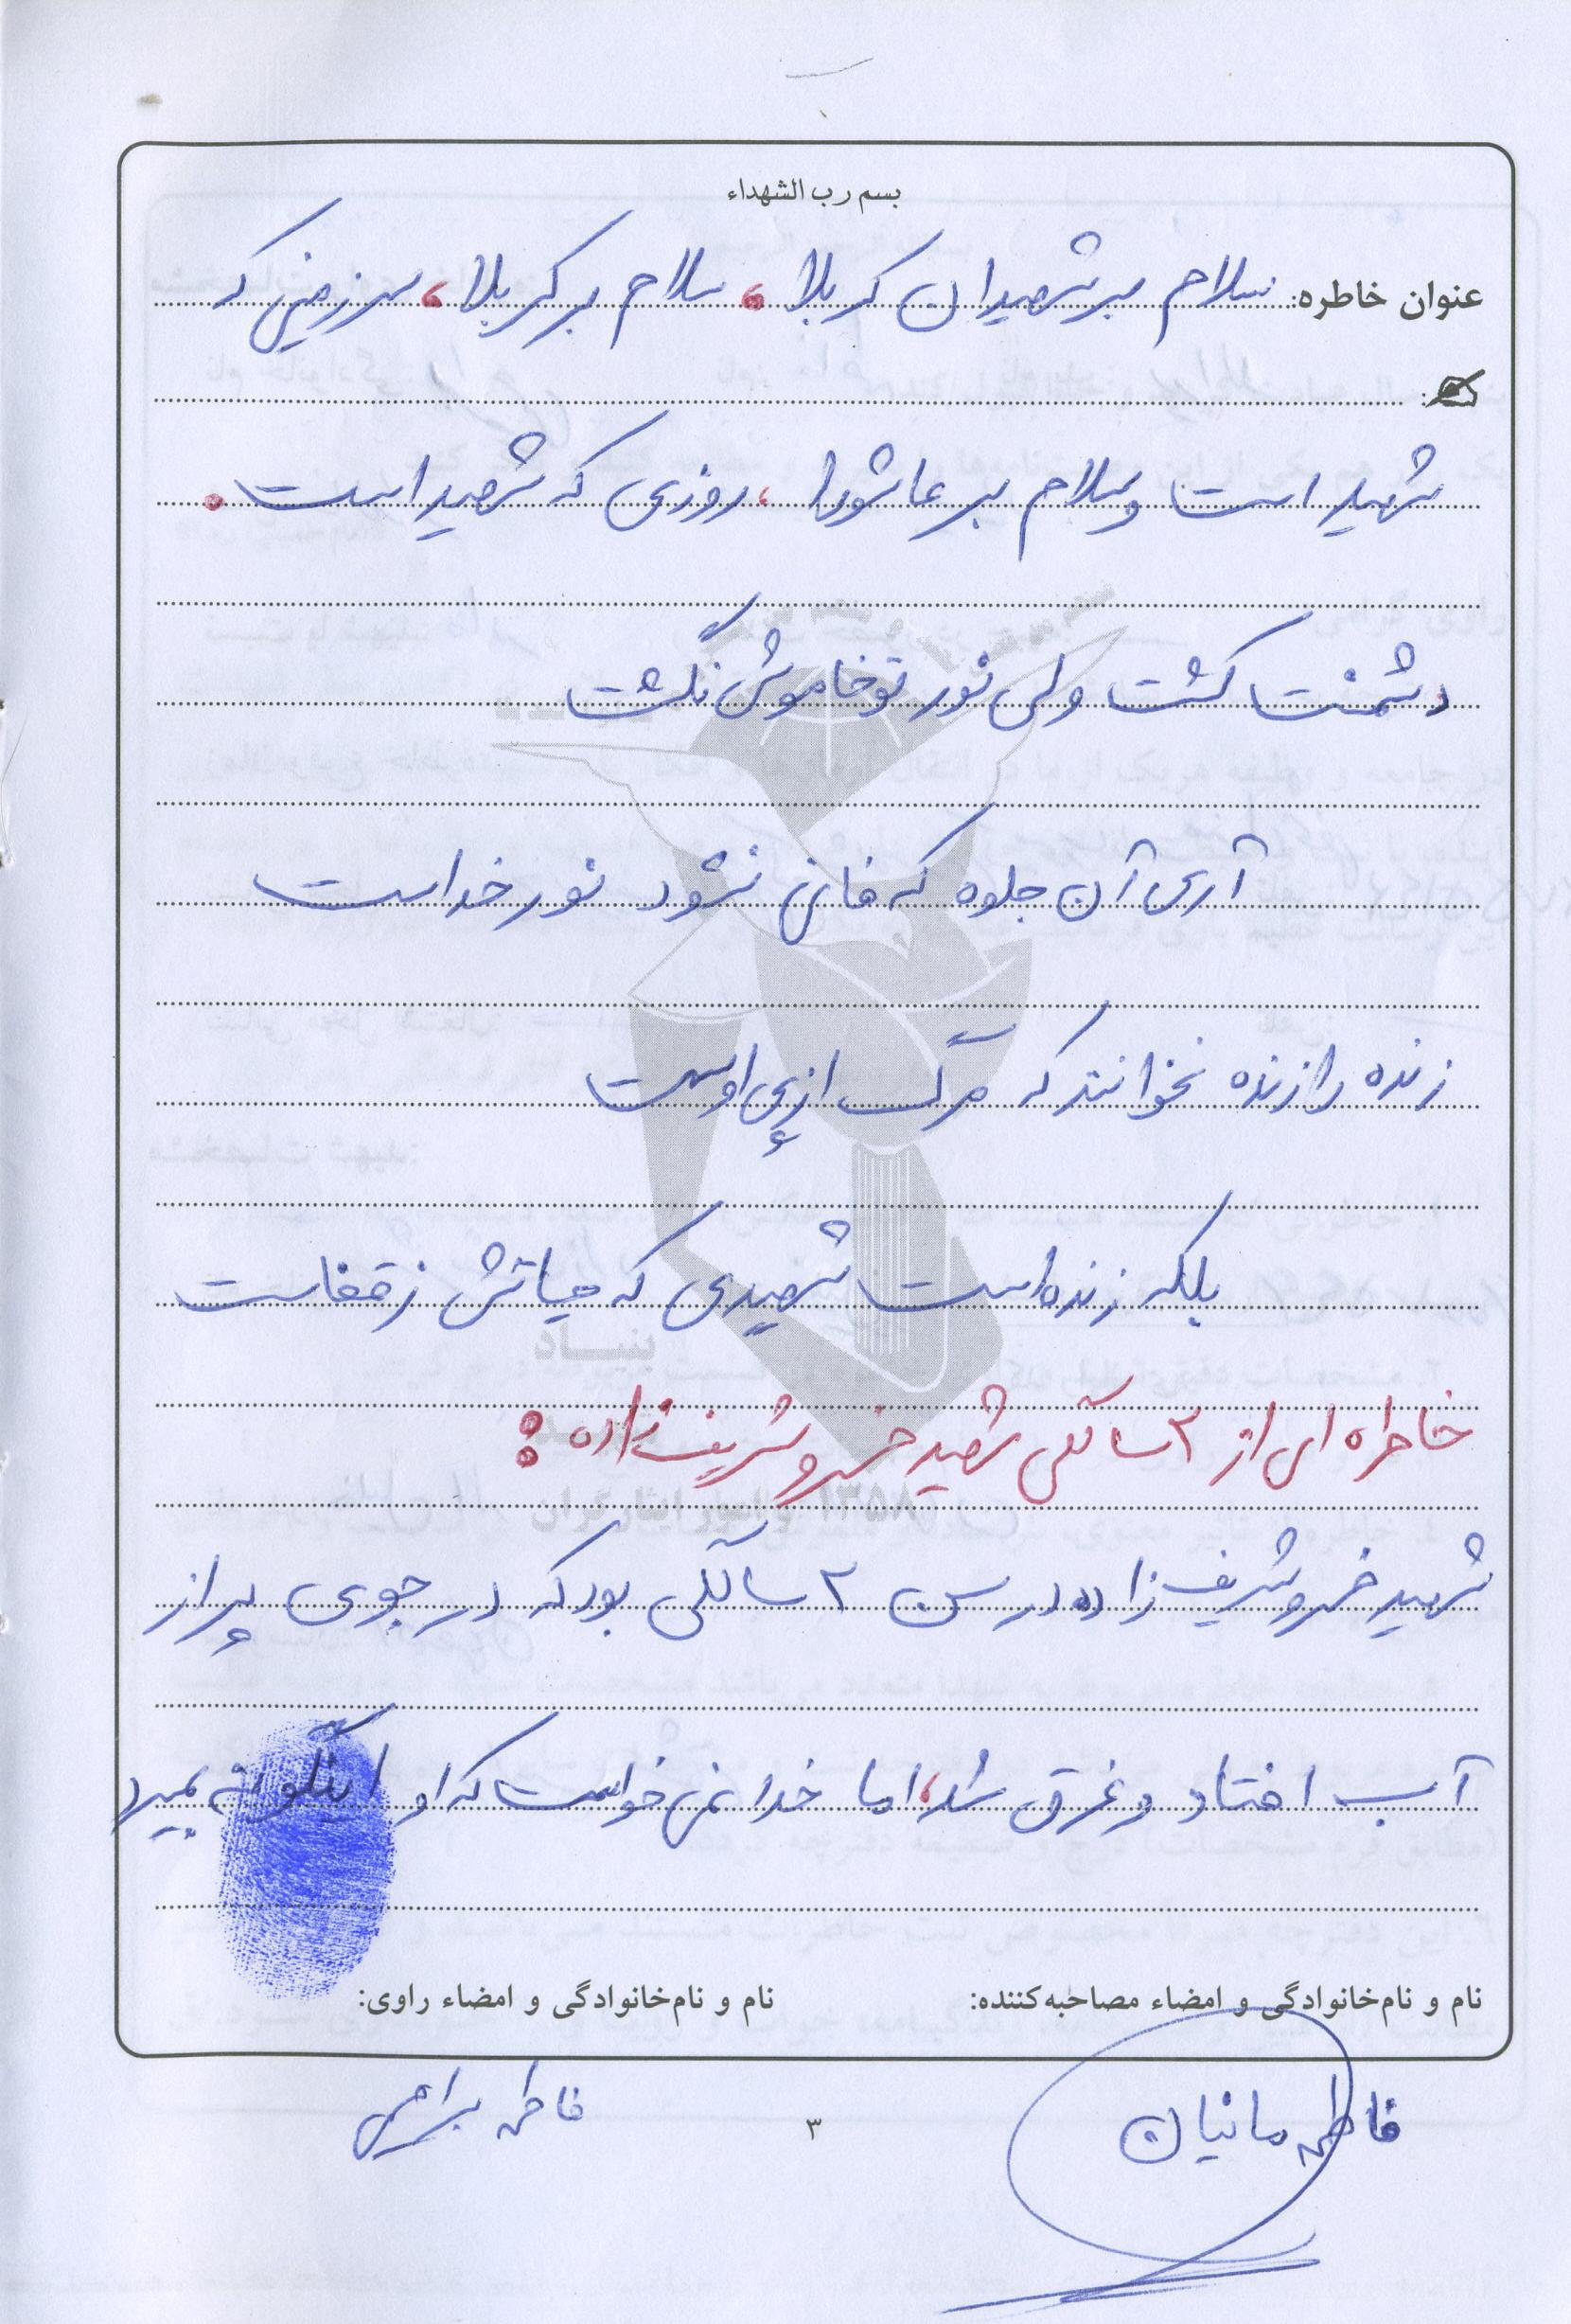 بسم رب الشهداء
عنوان خاطره: سلام بر شهیدان کربلا، سلام بر کربلا، سرزمینی که
شهید است و سلام بر عاشورا، روزی که شهید است.
دشمنت کشت ولی نور تو خاموش نگشت
آری آن جلوه که فانی نشود نور خداست
زنده را زنده نخوانند که مرگ از پی اوست
بلکه زنده است شهیدی که حیاتش ز قفاست
بنیاد
خاطره ای از ۲ سالگی شهید خسرو شریف زاده:
و امور ایثارگران ۱۳۵۸
شهید خسرو شریف زاده در سن ۲ سالگی بود که در جوی پر از
آب افتاد و غرق شد، اما خدا نمی خواست که او اینگونه بمیرد
نام و نام‌خانوادگی و امضاء مصاحبه‌کننده: نام و نام‌خانوادگی و امضاء راوی:
فاطمه مانیان فاطمه
۳